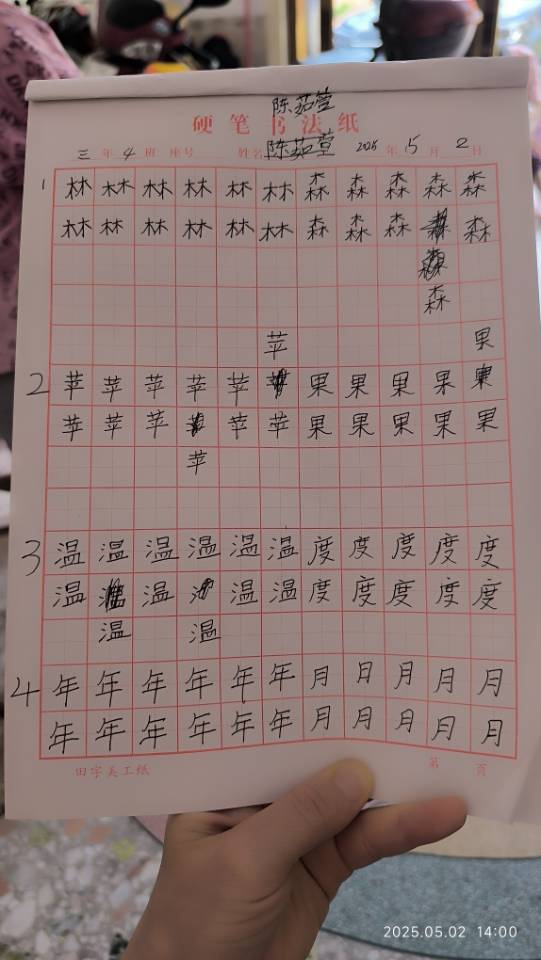 陈茹萱
硬笔书法纸
三年4班 座号 姓名陈茹萱 2025年5月2日
1 林林林林林林森森森森森
林林林林林林森森森森
森
苹 果
2 苹苹苹苹苹果果果果
苹苹苹苹苹果果果果果
苹
3 温温温温温温度度度度度
温温温温度度度度度
温 温
4 年年年年年年月月月月月
年年年年年年月月月月月
田字美工纸 第 页
2025.05.02 14:00